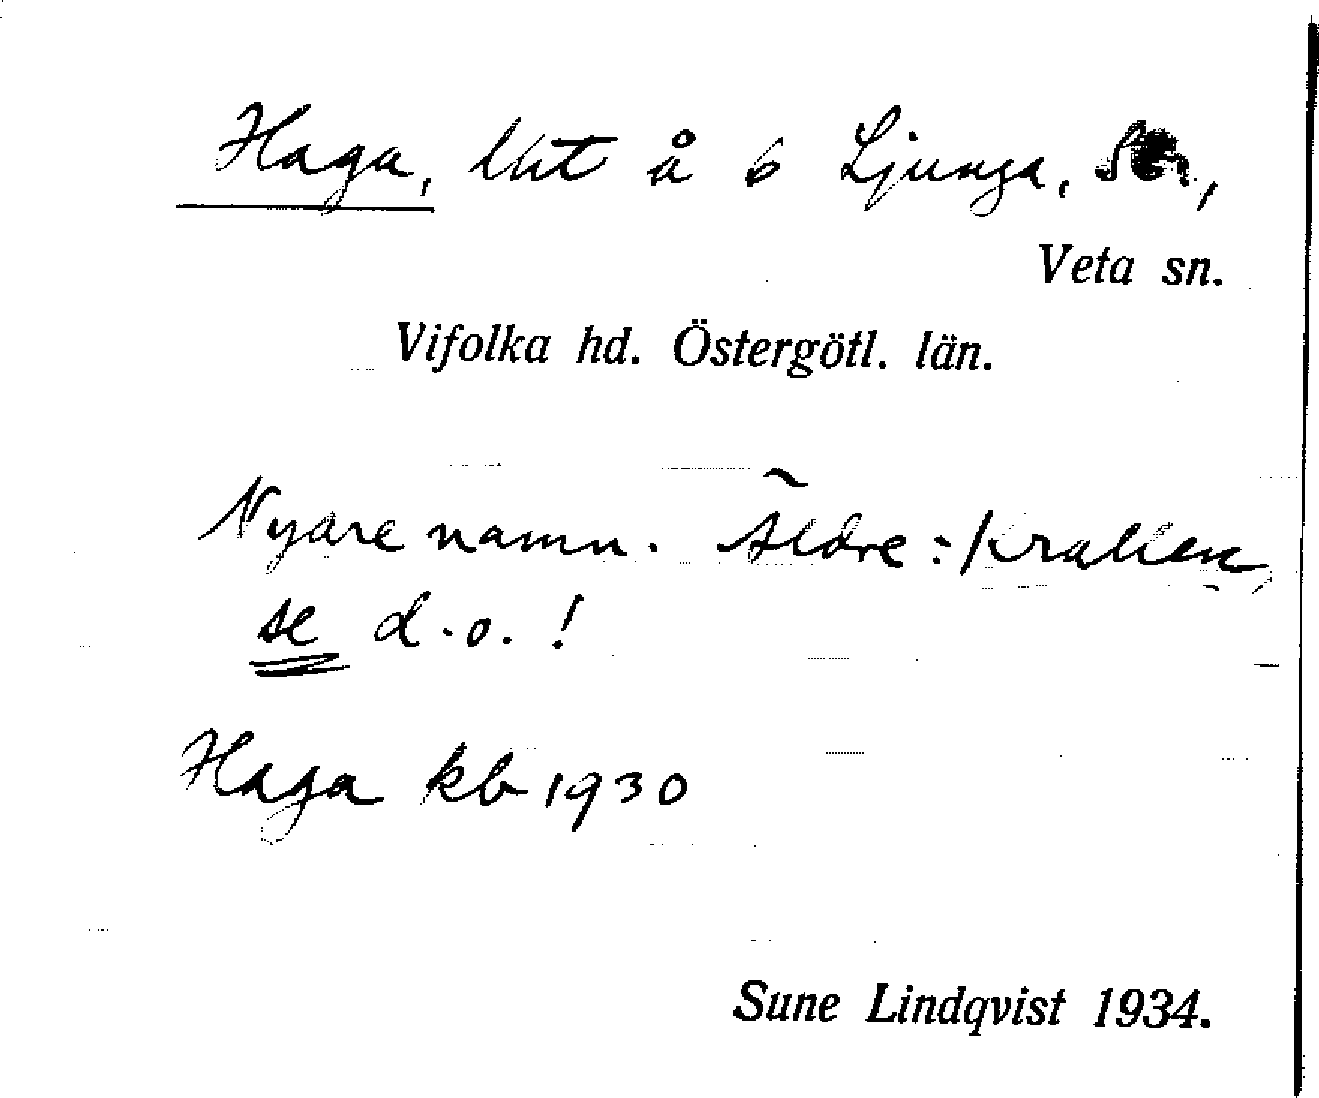 Haga, lht å 6 Ljunga, St.,
Veta sn.
Vifolka hd. Östergötl. län.
Nyare namn. Äldre: Krallen,
se d.o.!
Haga kb 1930
Sune Lindqvist 1934.